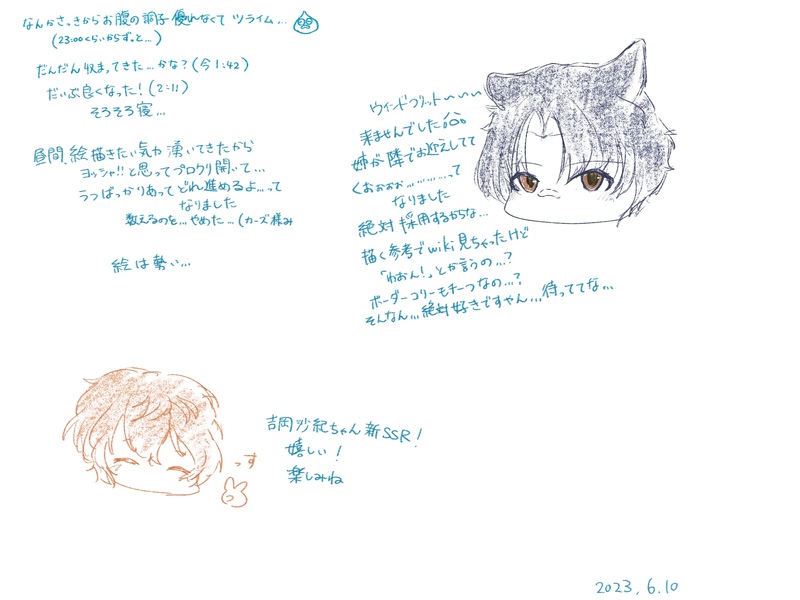 なんかさっきからお腹の調子優れなくてツライム…
(23:00くらいからずっと…)
だんだん収まってきた…かな?(今1:42)
だいぶ良くなった!(2:11)
そろそろ寝…
昼間、絵描きたい気力湧いてきたから
ヨッシャ!!と思ってプロクリ開いて…
うつばっかりあってどれ進めるよ…って
なりました
数えるのを…やめた…(カーズ様み
絵は勢い…
ウィンドブリット〜〜〜
来ませんでした
姉が隣でお迎えしてて
くおぉぉぉ…………って
なりました
絶対採用するからな…
描く参考でwiki見ちゃったけど
「わおん!」とか言うの…?
ボーダーコリーモチーフなの…?
そんなん…絶対好きですやん…待っててな…
っす
吉岡沙紀ちゃん新SSR!
嬉しい!
楽しみね
2023.6.10